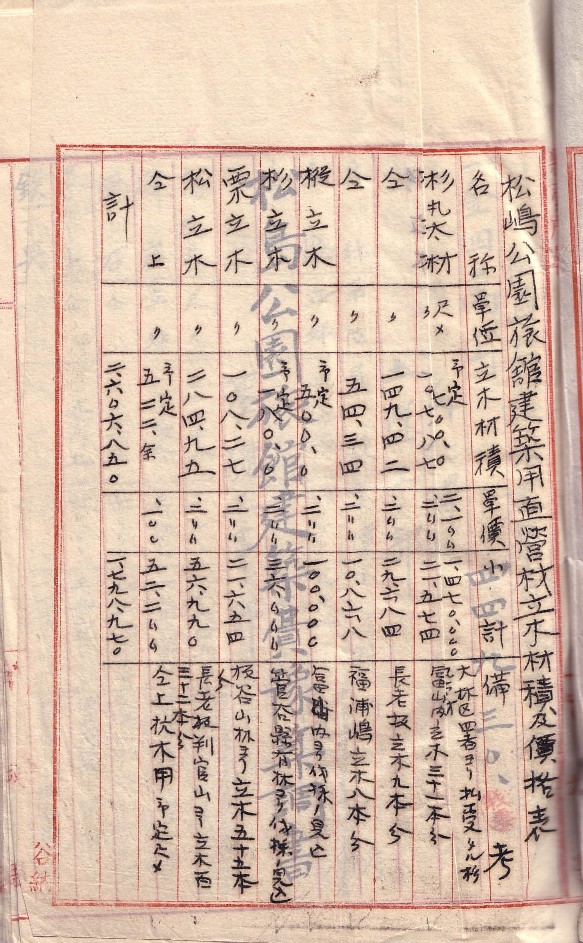 松嶋公園旅館建築用直營材立木材積及價格表
名称 單位 立木材積 單價 小計 備考
杉丸太材 尺〆 予定 七〇〇、〇 二、一〇〇 一四七〇、〇〇〇 大林区署ヨリ払受タル杉
〃 一〇七、八七 、二〇〇 二一、五七四 富山内立木三十一本分
仝 〃 一四九、四二 、二〃〃 二九、六八四 長老坂立木九本分
仝 〃 五四、三四 、二〃〃 一〇、八六八 福浦嶋立木八本分
樅立木 〃 予定 五〇〇、〇 、二〃〃 一〇〇、〇〇〇 富山内ヨリ伐採ノ見込
杉立木 〃 予定 一八〇、〇 、二〃〃 三六、〇〇〇 菅谷縣有林ヨリ伐採ノ見込
栗立木 〃 一〇八、二七 、二〃〃 二一、六五四 板谷山林ヨリ立木五十五本分
松立木 〃 二八四、九五 、二〃〃 五六、九九〇 長老坂判官山ヨリ立木百三十二本分
仝上 〃 予定 五二二、余 、一〇〇 五二、二〇〇 仝上枕木用予定尺〆
計 二、六〇六、八五〇 一、七九八、九七〇
松島公園旅館建築費豫算調書